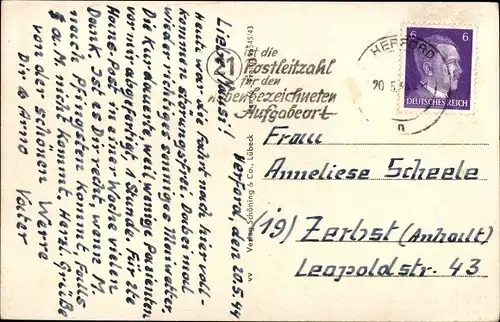 Herford, den 20.5.44
Liebe Mausi!
Heute war die Fahrt nach hier voll-
kommen störungsfrei. Dabei noch
wieder richtiges sonniges Maiwetter.
Die Kur dauerte, weil wenige Patienten
vor mir abgefertigt, 1 Stunde. Für die
Haus-Post in einer Woche vielen
Dank. Ist es Dir recht, wenn M.
nach Pfingsten kommt, falls
F a. M. nicht kommt. Herzl. Grüße
von der schönen Werre
Dir
Vater
VV Verlag Schöning & Co., Lübeck
545/43
21
ist die
Postleitzahl
für den
obenbezeichneten
Aufgabeort
HERFORD
20.5.
n
6 6
DEUTSCHES REICH
Frau
Anneliese Scheele
(19) Zerbst (Anhalt)
Leopoldstr. 43